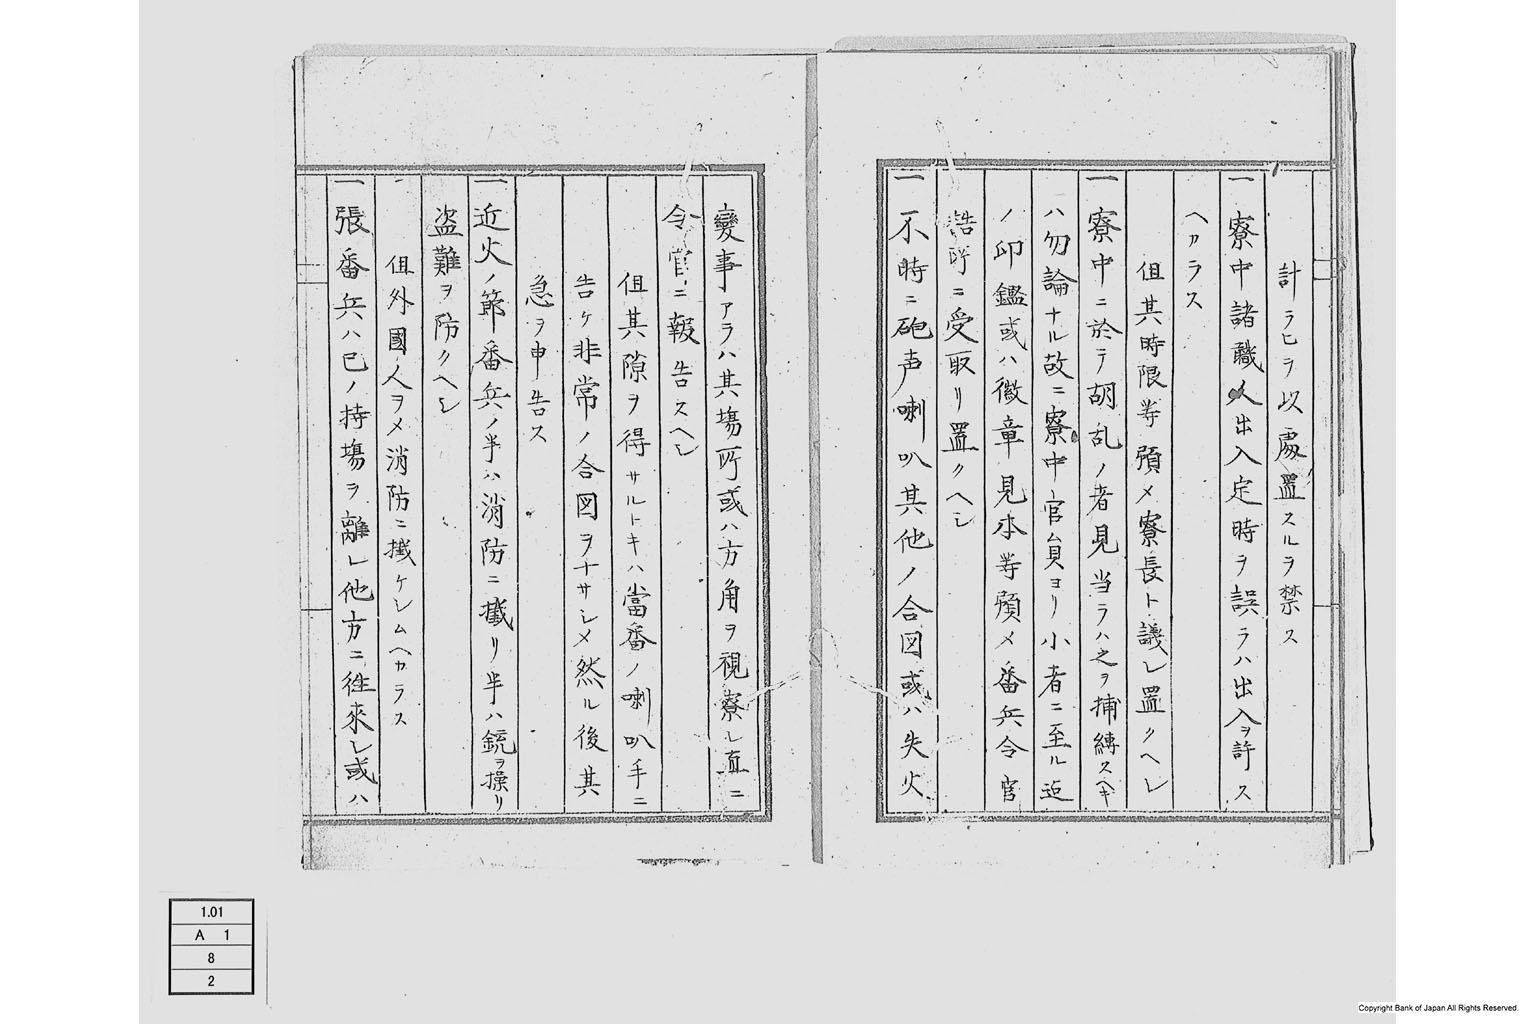 計ラヒヲ以處置スルヲ禁ス
一寮中諸職人出入定時ヲ誤ラハ出入ヲ許ス
ヘカラス
但其時限等預メ寮長ト議シ置クヘシ
一寮中ニ於テ胡乱ノ者見当ラハ之ヲ捕縛スヘキ
ハ勿論ナル故ニ寮中官員ヨリ小者ニ至ル迄
ノ印鑑或ハ徽章見本等預メ番兵令官
詰所ニ受取リ置クヘシ
一不時ニ砲声喇叭其他ノ合図或ハ失火
變事アラハ其塲所或ハ方角ヲ視察シ直ニ
令官ニ報告スヘシ
但其隙ヲ得サルトキハ當番ノ喇叭手ニ
告ケ非常ノ合図ヲナサシメ然ル後其
急ヲ申告ス
一近火ノ節番兵ノ半ハ消防ニ掛リ半ハ銃ヲ操リ
盗難ヲ防クヘシ
但外國人ヲメ消防ニ掛ケシムヘカラス
一張番兵ハ已ノ持塲ヲ離レ他方ニ徃来シ或ハ
1.01
A 1
8
2
Copyright Bank of Japan All Rights Reserved.